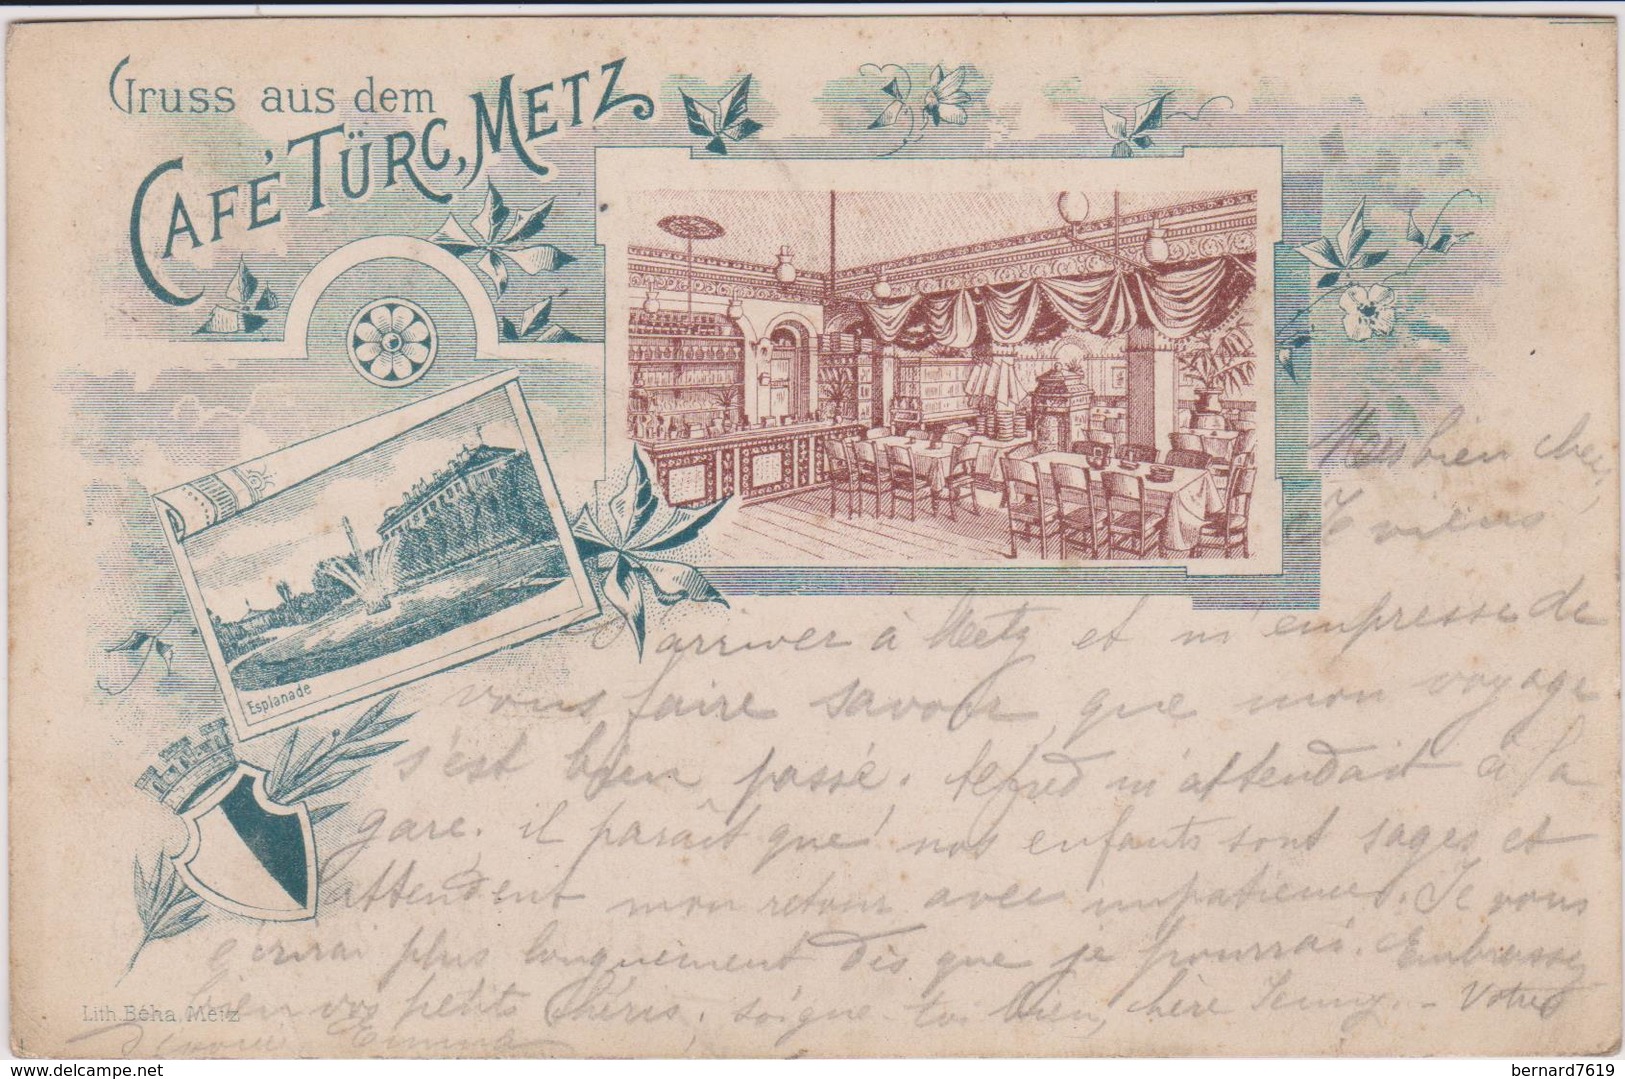 Gruss aus dem
CAFÉ TÜRC, METZ
Esplanade
Mes bien chers,
Je viens
arriver à Metz et m'empresse de
vous faire savoir que mon voyage
s'est bien passé. Alfred m'attendait à la
gare. il paraît que nos enfants sont sages et
attendent mon retour avec impatience. Je vous
écrirai plus longuement dès que je pourrai. Embrassez
bien vos petits chéris, soigne-toi bien, chère Jenny. - Votre
Emma
Lith. Béha, Metz
delcampe.net
bernard7619